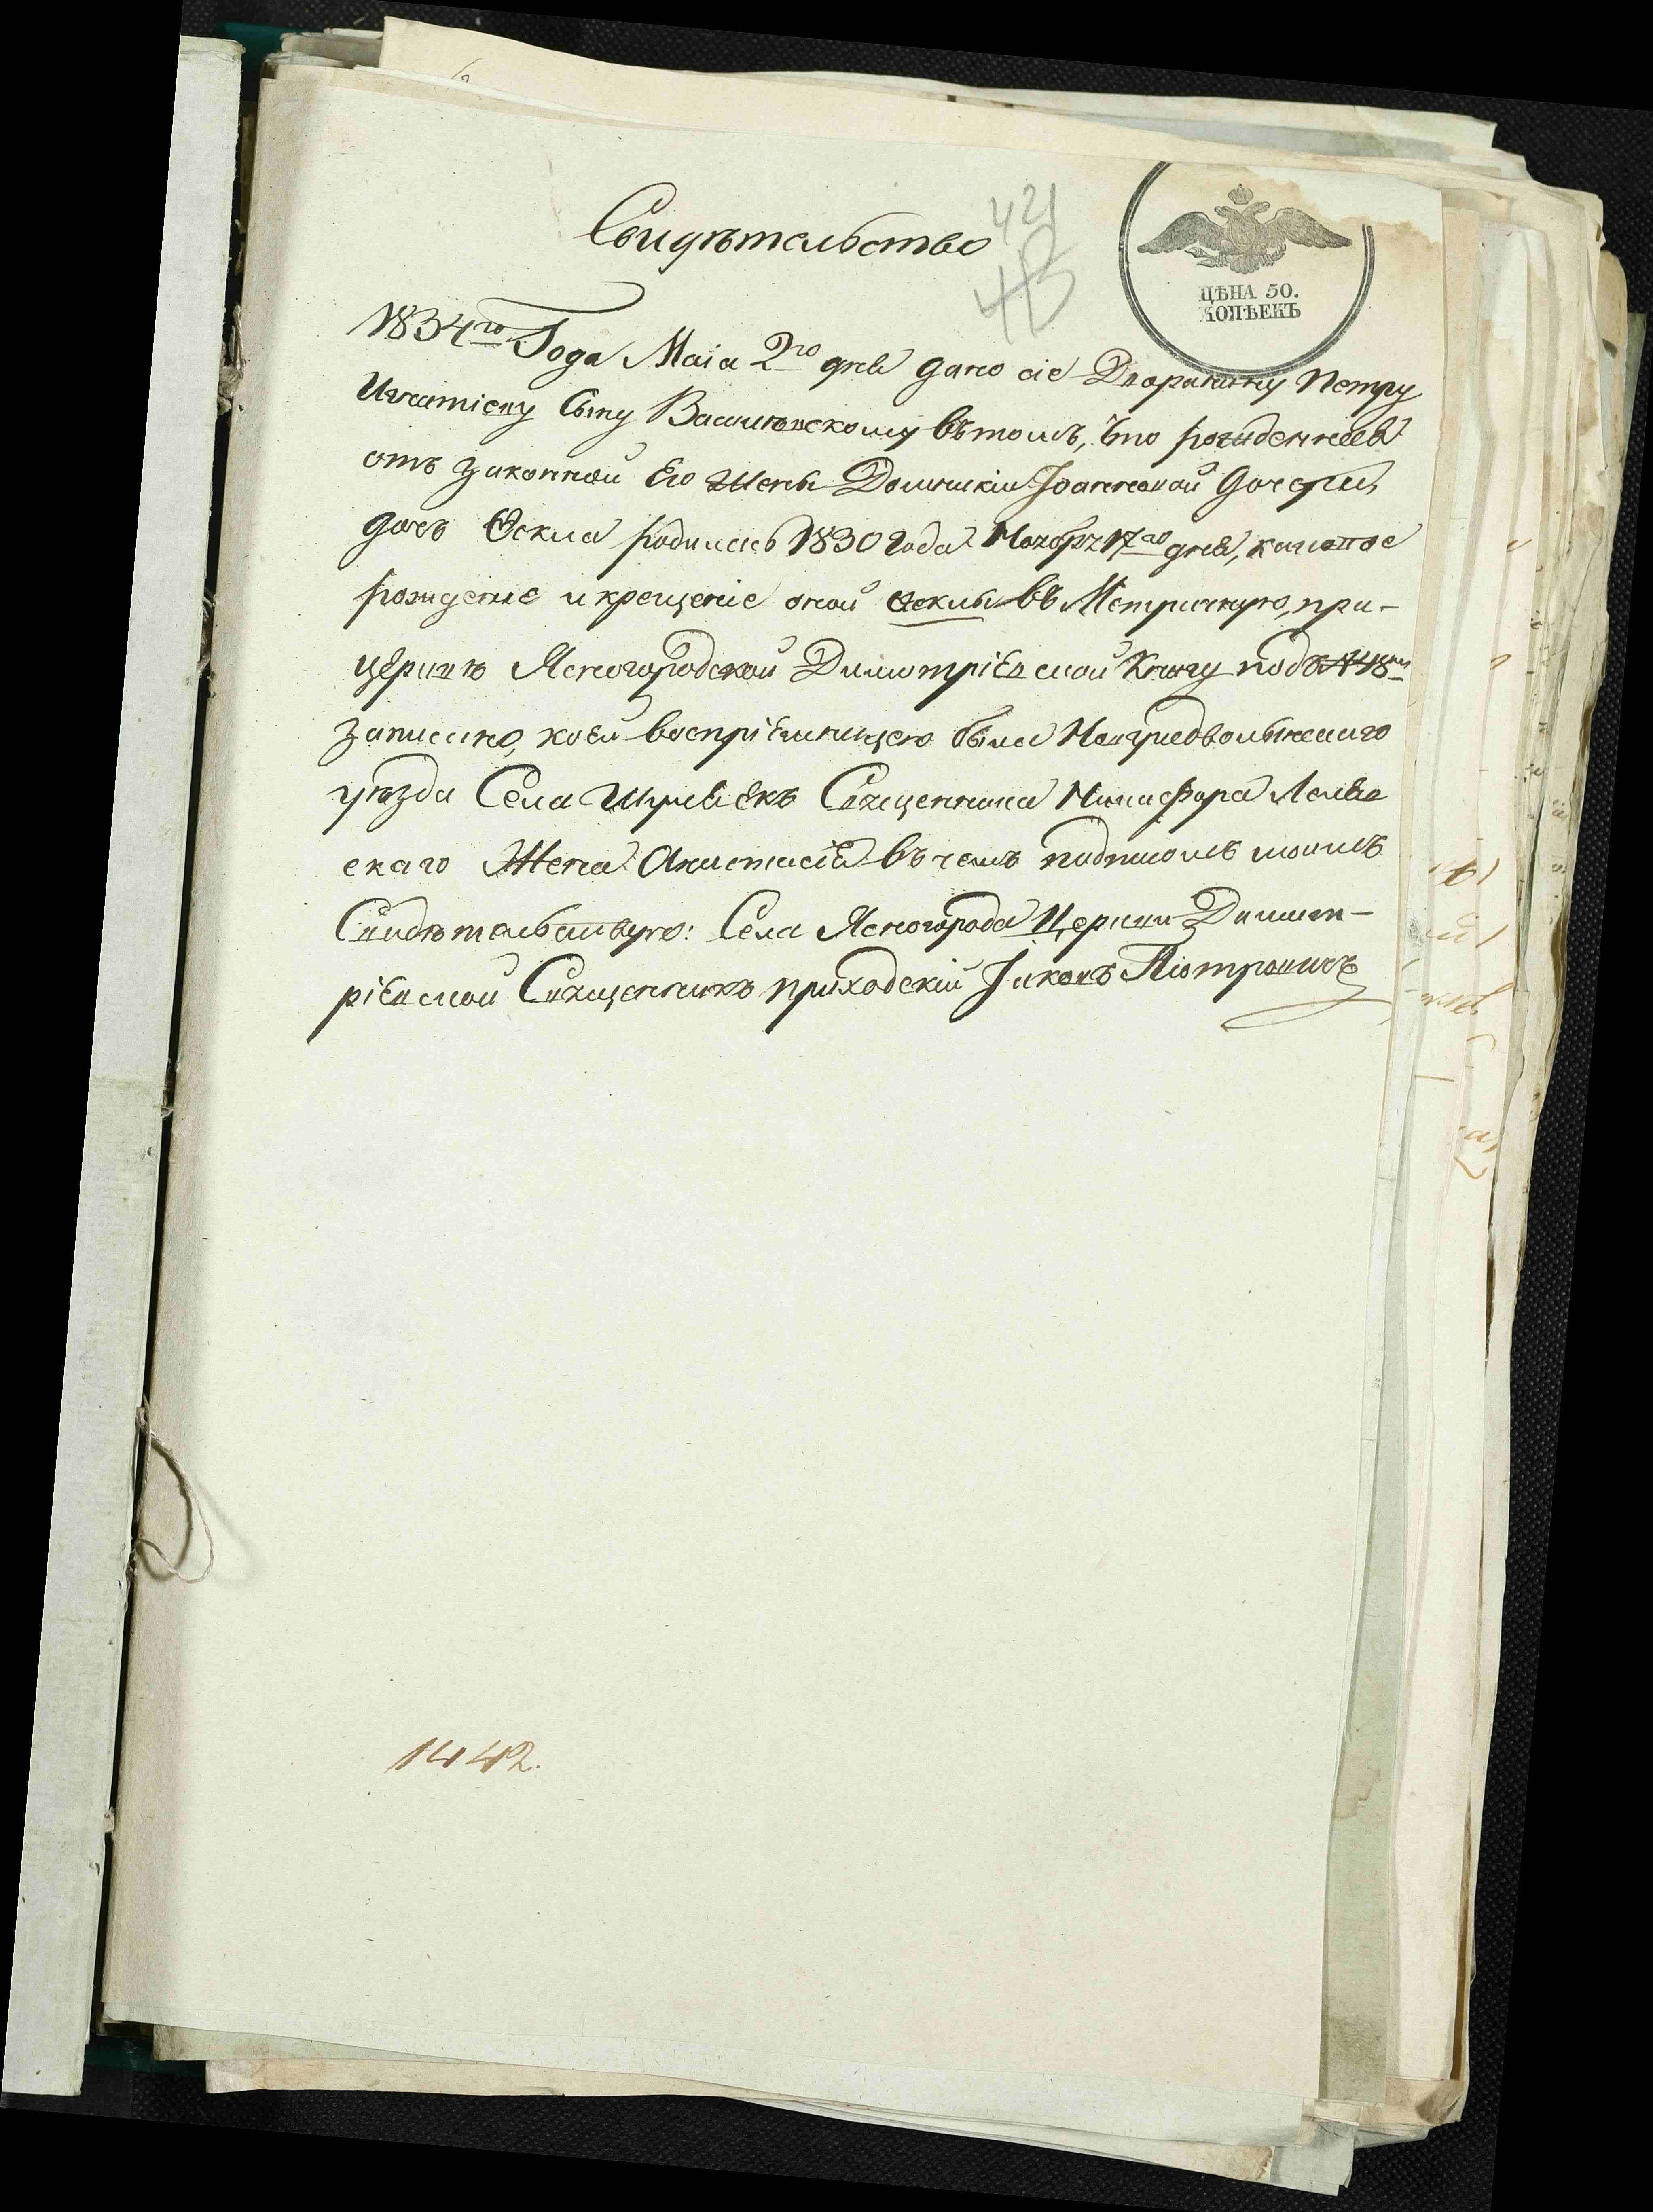 421
43
Свидѣтельство
ЦѢНА 50.
КОПѢЕКЪ
1834го Года Маія 2го дня дано сіе Дворянину Петру
Игнатіеву Сыну Васильевскому вѣтомъ, что рожденная
отъ законной Его Жены Домникіи Іоанновой дочери,
дочь Ѳекла родилась 1830 года Ноября 17го дня, каковое
рожденіе и крещеніе оной Ѳеклы въ Метричную, при-
церкви Ясногородской Димитріевской Книгу подъ № 18м
записано, коей воспріемницею была Новградволынскаго
уѣзда Села Священника Никифора
скаго Жена Анастасія въ чемъ подписомъ моимъ
Свидѣтельствую: Села Ясногорода Церкви Димит-
ріевской Священникъ приходскій Іаковъ Піотровичъ
1442.